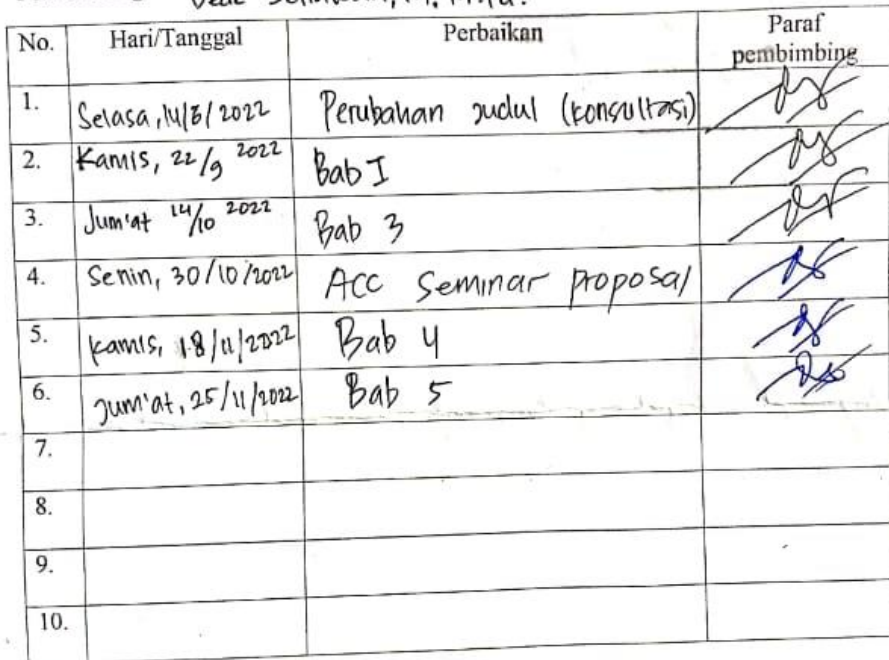 No. Hari/Tanggal Perbaikan Paraf pembimbing
1. Selasa, 14/6/2022 Perubahan Judul (konsultasi)
2. Kamis, 22/9 2022 Bab I
3. Jum'at 14/10 2022 Bab 3
4. Senin, 30/10/2022 ACC Seminar proposal
5. Kamis, 18/11/2022 Bab 4
6. Jum'at, 25/11/2022 Bab 5
7.
8.
9.
10.